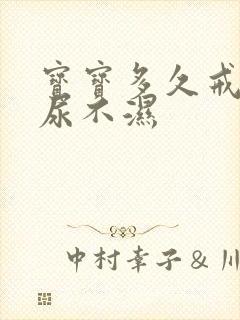 寶寶多久戒
尿不濕
中村幸子 & 川